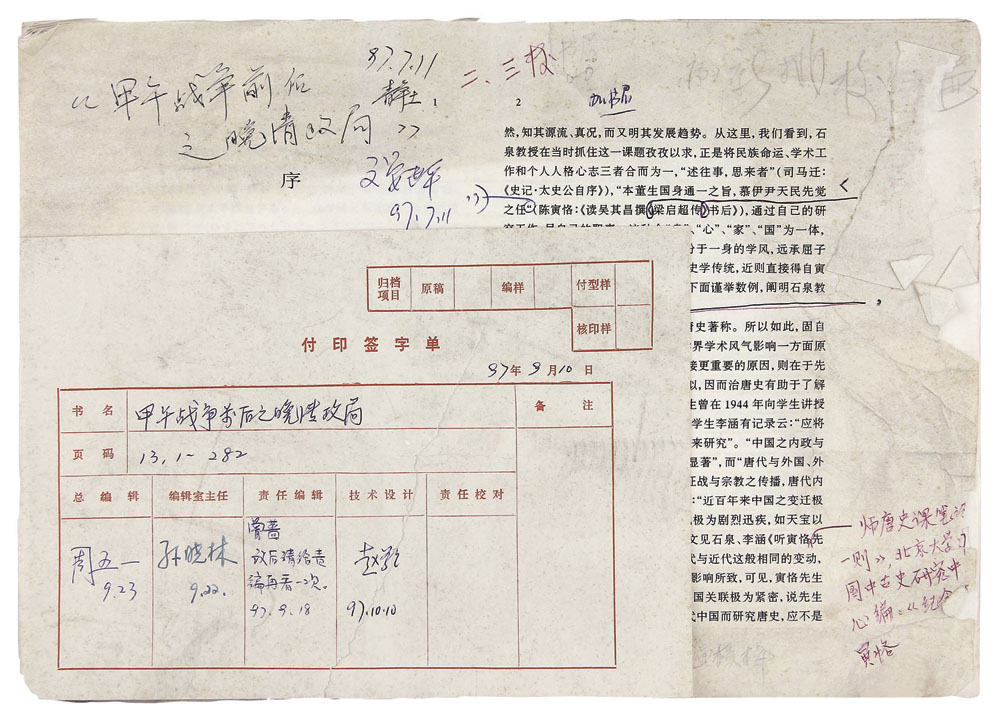 97.7.11
《甲午战争前后
之晚清政局》
二、三校
序
97.7.11
1
2
然，知其源流、真况，而又明其发展趋势。从这里，我们看到，石
泉教授在当时抓住这一课题孜孜以求，正是将民族命运、学术工
作和个人人格心志三者合而为一，“述往事，思来者”（司马迁：
《史记·太史公自序》），“本董生国身通一之旨，慕伊尹天民先觉
之任”（陈寅恪：《读吴其昌撰《梁启超传》书后》），通过自己的研
“心”、“家”、“国”为一体，
于一身的学风，远承屈子
史学传统，近则直接得自寅
下面谨举数例，阐明石泉教
唐史著称。所以如此，固自
界学术风气影响一方面原
接更重要的原因，则在于先
以，因而治唐史有助于了解
生曾在1944年向学生讲授
学生李涵有记录云：“应将
来研究”。“中国之内政与
显著”，而“唐代与外国、外
征战与宗教之传播，唐代内
：“近百年来中国之变迁极
极为剧烈迅疾，如天宝以
文见石泉、李涵《听寅恪先
代与近代这般相同的变动，
影响所致，可见，寅恪先生
国关联极为紧密，说先生
代中国而研究唐史，应不是
师唐史课笔记
一则》，北京大学中
国中古史研究中
心编：《纪念
寅恪
归档项目 原稿 编样 付型样
核印样
付印签字单
97年9月10日
书名 甲午战争前后之晚清政局 备注
页码 13，1-282
总编辑 编辑室主任 责任编辑 技术设计 责任校对
周五一
9.23
孙晓林
9.22.
曾蔷
改后请给责
编再看一次。
97.9.18
97.10.10